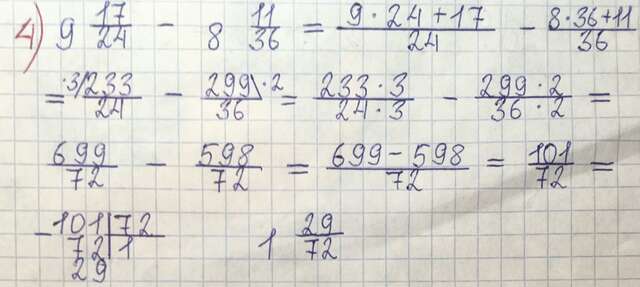 4) 9 17/24 - 8 11/36 = (9·24+17)/24 - (8·36+11)/36
= ·3/ 233/24 - 299/36 \·2 = (233·3)/(24·3) - (299·2)/(36·2) =
699/72 - 598/72 = (699-598)/72 = 101/72 =
-101|72 1 29/72
72|1
29